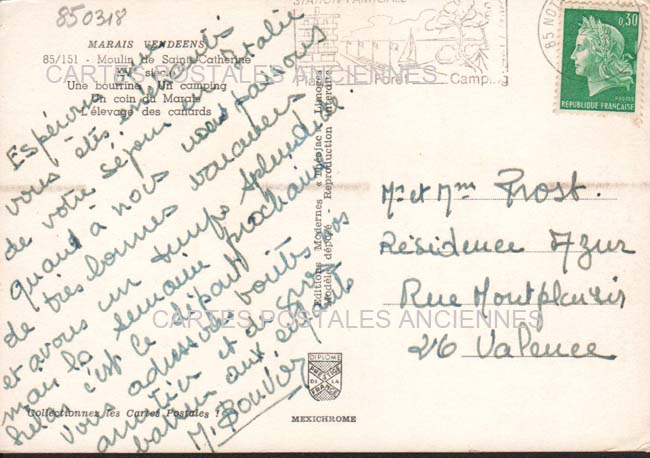 850318
STATION FAMILIALE
Forêt Camping
85 NOT
0,30
POSTES
REPUBLIQUE FRANÇAISE
MARAIS VENDEENS
85/151 - Moulin de Sainte Catherine
siècle
Une bourrine Un camping
Un coin du Marais
L'élevage des canards
CARTES POSTALES ANCIENNES
Espérons que
vous êtes
de votre séjour en Italie
quant à nous nous passons
de très bonnes vacances
et avons un temps splendide
mais la semaine prochaine
hélas c'est le départ
vous adressons toutes nos
amitiés et de gros
baisers aux enfants
M. Bouvier
Editions Modernes « Théojac » Limoges
Modèle déposé - Reproduction interdite
Mr et Mme Prost
Résidence Azur
Rue Montplaisir
26 Valence
CARTES POSTALES ANCIENNES
DIPLOME
PRESTIGE
DE LA
FRANCE
Collectionnez les Cartes Postales !
MEXICHROME